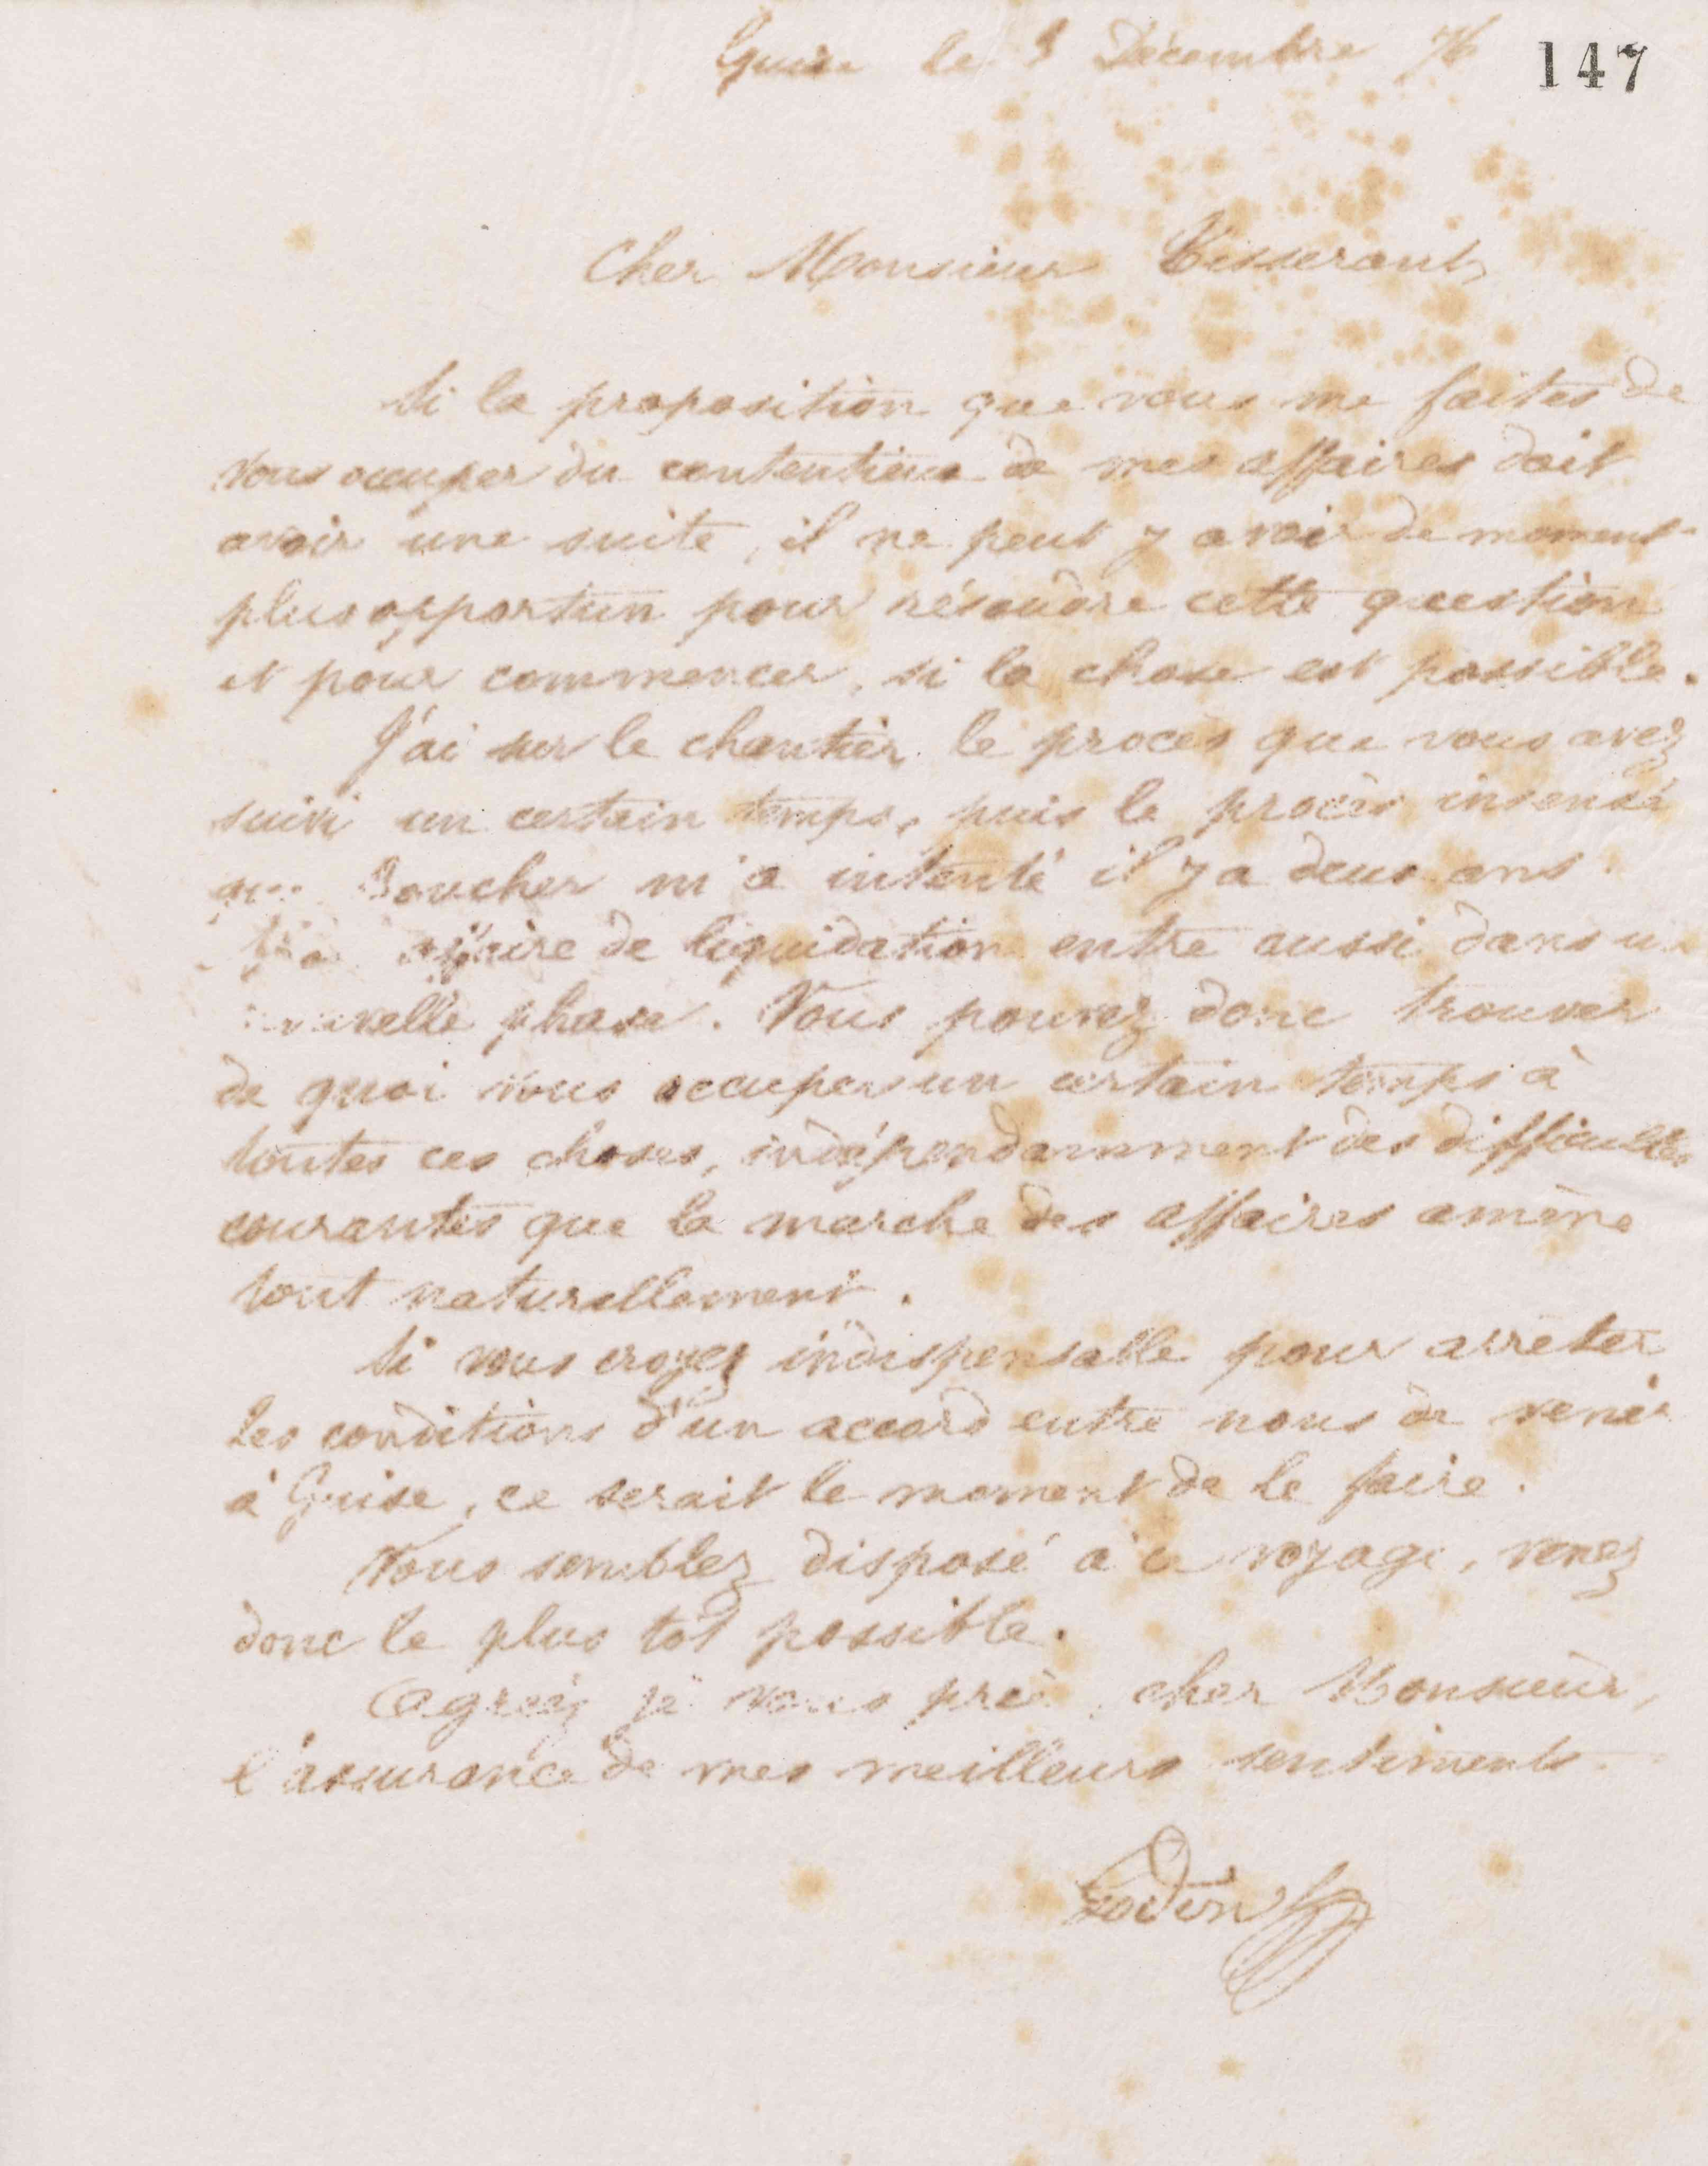 Guise le 3 Décembre 76
147
Cher Monsieur Tisserant,
Si la proposition que vous me faites de
vous occuper du contentieux de mes affaires doit
avoir une suite, il ne peut y avoir de moment
plus opportun pour résoudre cette question
et pour commencer, si la chose est possible.
J'ai sur le chantier le procès que vous avez
suivi un certain temps, puis le procès insensé
que Boucher m'a intenté il y a deux ans.
affaire de liquidation entre aussi dans
nouvelle phase. Vous pouvez donc trouver
de quoi vous occuper un certain temps à
toutes ces choses, indépendamment des difficultés
courantes que la marche des affaires amène
tout naturellement.
Si vous croyez indispensable pour arrêter
les conditions d'un accord entre nous de venir
à Guise, ce serait le moment de le faire.
Vous semblez disposé à ce voyage, venez
donc le plus tôt possible.
Agréez je vous prie, cher Monsieur,
l'assurance de mes meilleurs sentiments.
Godin